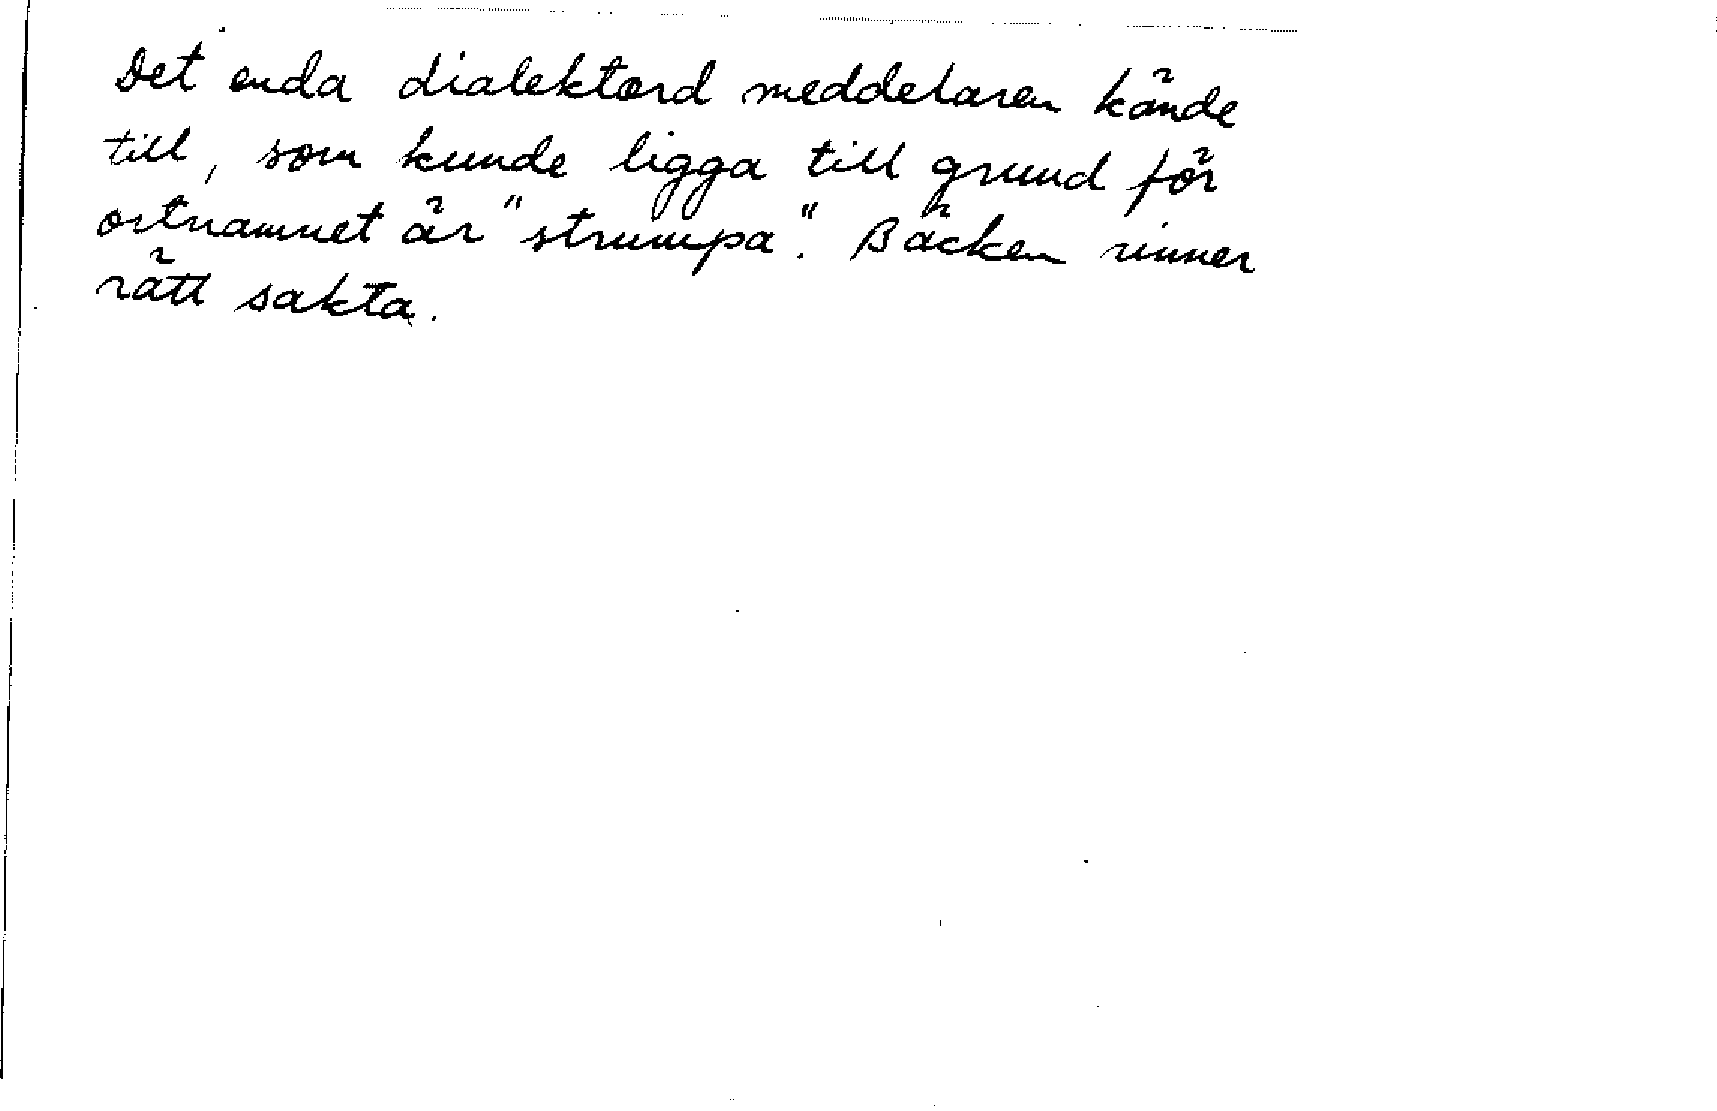 Det enda dialektord meddelaren kände
till, som kunde ligga till grund för
ortnamnet är "strumpa". Bäcken rinner
rätt sakta.